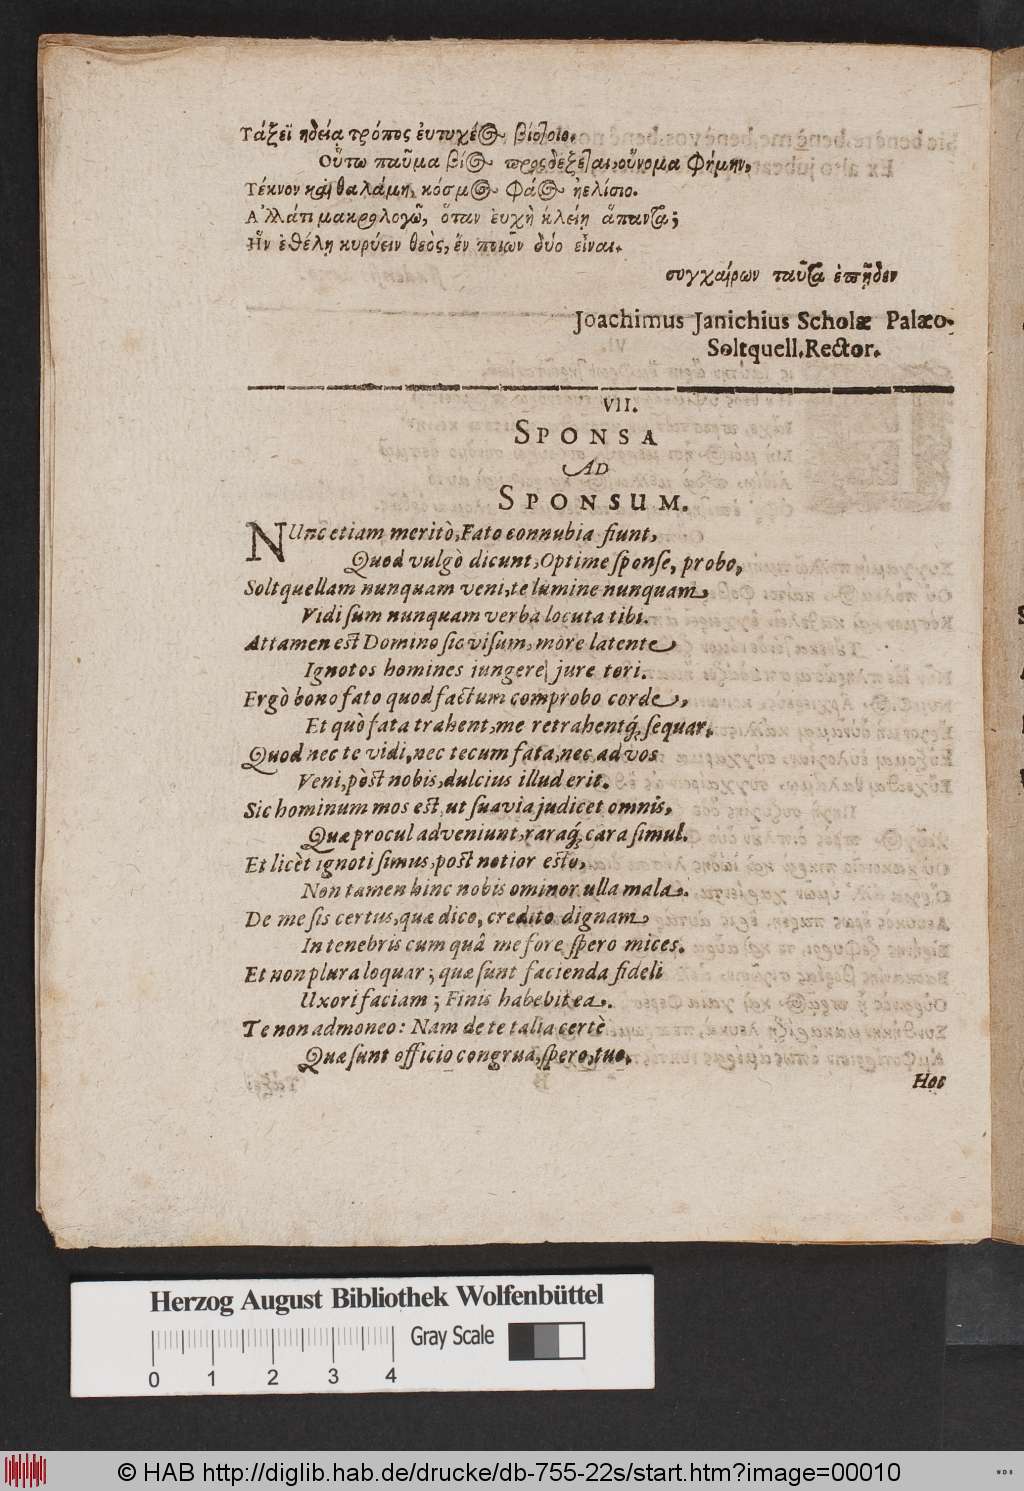 Τάξεϊ ηδεία τρόπος ἐυτυχέος βιότοιο.
Οὕτω παῦμα βίος προςδέξεται οὔνομα Φήμην,
Τέκνον καὶ θαλάμη, κόσμος φάος ἠελίοιο.
Αλλάτι μακρολογῶ, ὅταν ἐυχὴ κλείη ἅπαντα;
Ἢν ἐθέλη κυρύειν θεὸς, ἕν ποιῶν δύο εἶναι.
συγχαίρων ταῦτα ἐπῇδεν
Joachimus Janichius Scholæ Palæo-
Soltquell. Rector.
VII.
SPONSA
AD
SPONSUM.
NUnc etiam meritò, Fato connubia fiunt,
Quod vulgò dicunt, Optime sponse, probo,
Soltquellam nunquam veni, te lumine nunquam
Vidi sum nunquam verba locuta tibi.
Attamen est Domino sic visum, more latente
Ignotos homines jungere jure tori.
Ergò bono fato quod factum comprobo corde,
Et quò fata trahent, me retrahentq́, sequar.
Quod nec te vidi, nec tecum fata, nec ad vos
Veni, pòst nobis, dulcius illud erit.
Sic hominum mos est, ut suavia judicet omnis,
Quæ procul adveniunt, raraq́, cara simul.
Et licèt ignoti simus, post notior esto,
Non tamen hinc nobis ominor ulla mala.
De me sis certus, quæ dico, credito dignam
In tenebris cum quâ me fore spero mices.
Et non plura loquar; quæ sunt facienda fideli
Uxori faciam; Finis habebit ea.
Te non admoneo: Nam de te talia certè
Quæ sunt officio congrua, spero, tuo.
Hoc
Herzog August Bibliothek Wolfenbüttel
Gray Scale
0 1 2 3 4
© HAB http://diglib.hab.de/drucke/db-755-22s/start.htm?image=00010